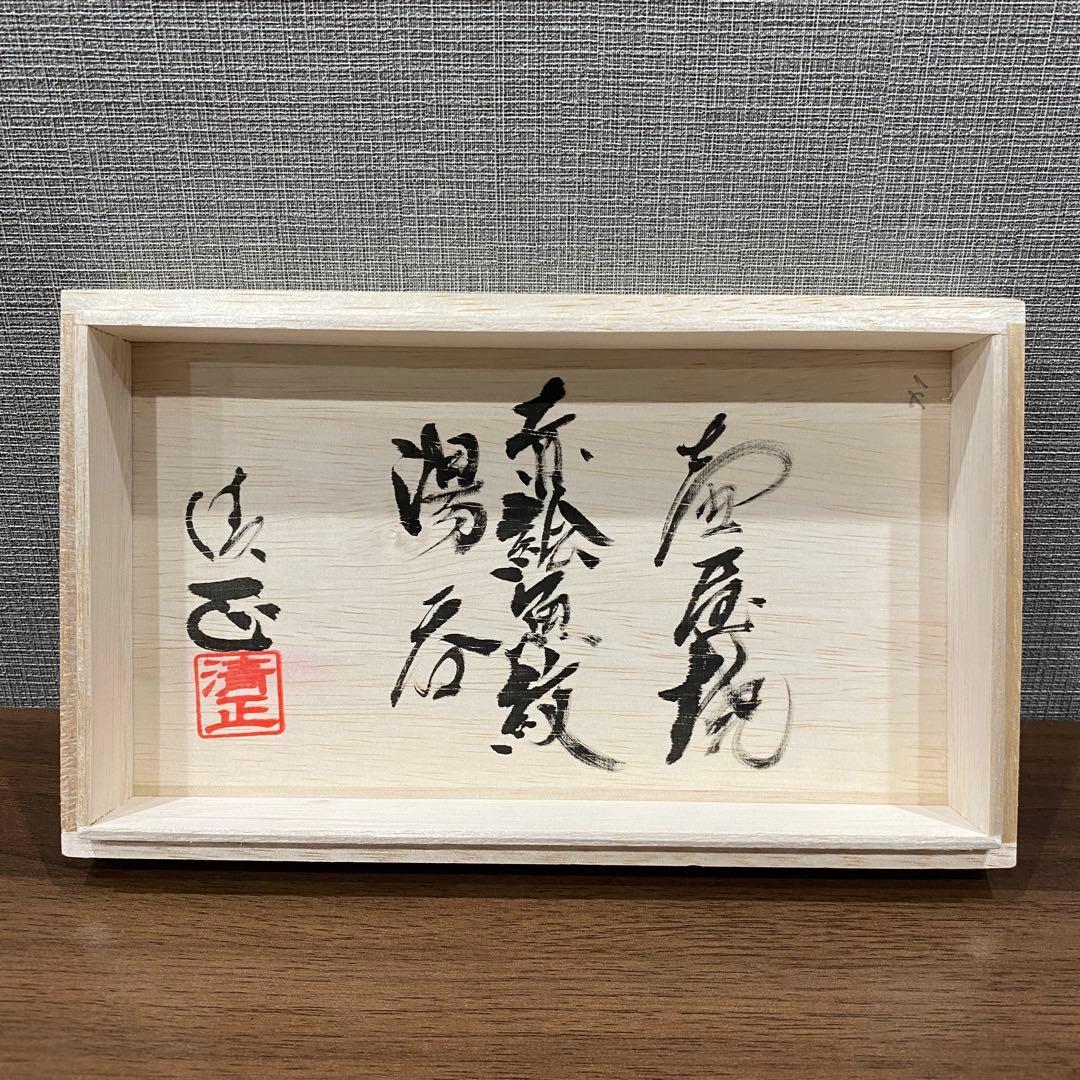 壷屋焼
赤絵魚紋
湯呑
清正
清正